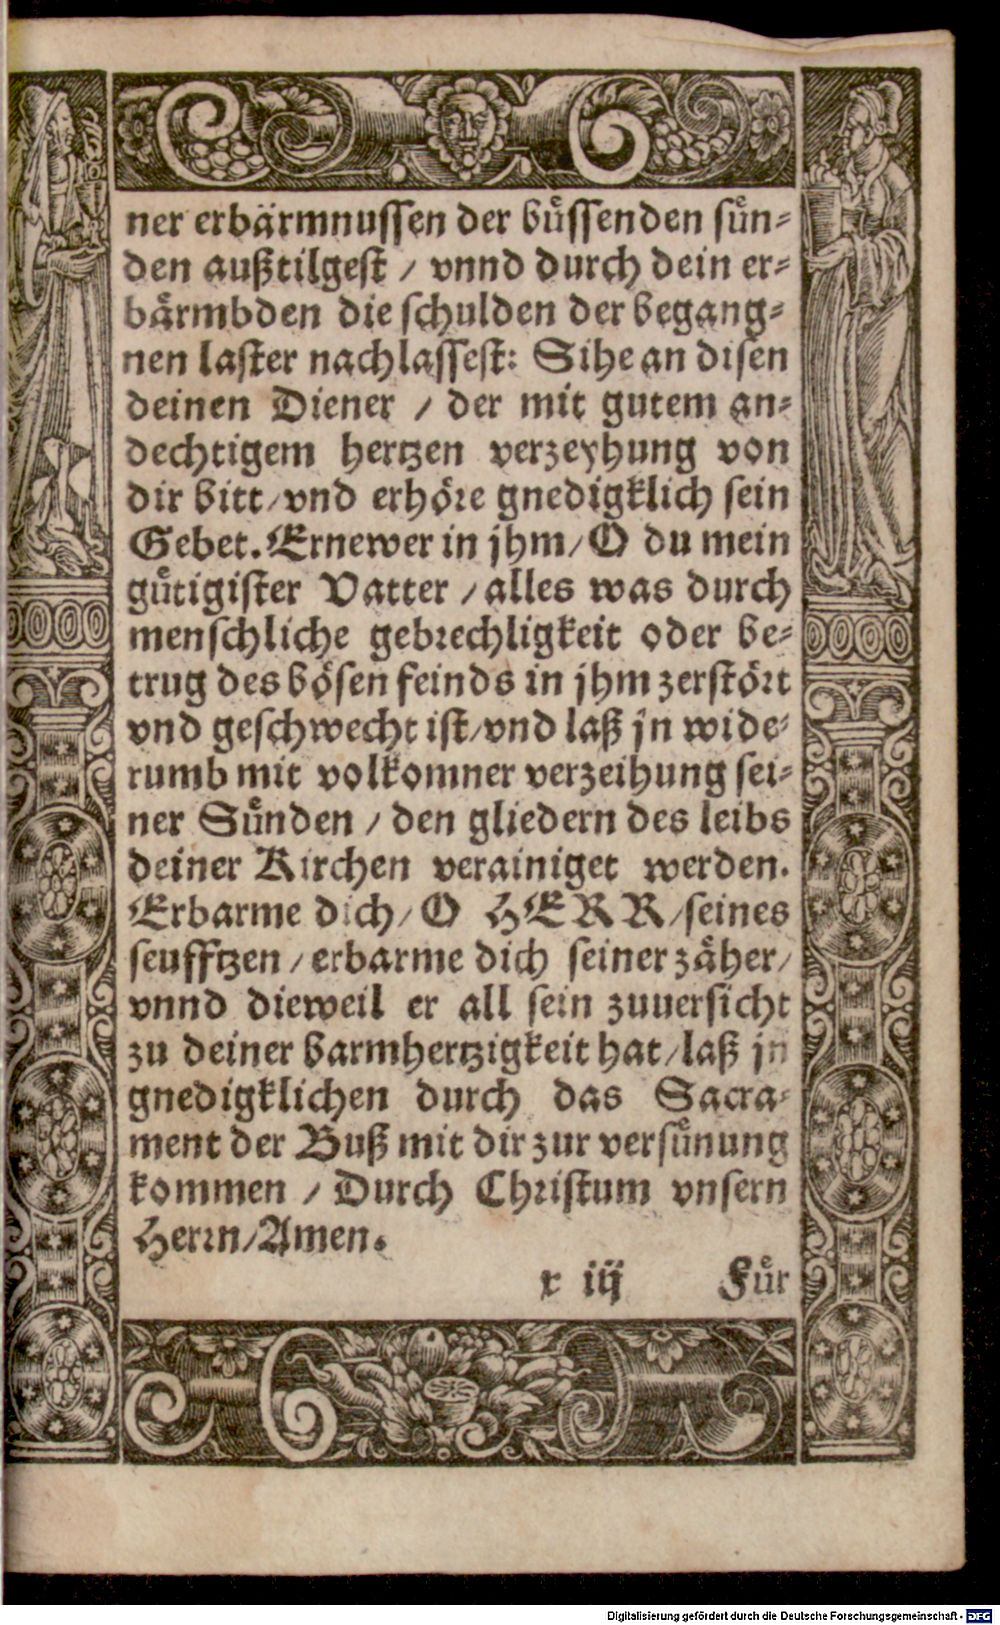 ner erbärmnussen der büssenden sün⸗
den außtilgest / vnnd durch dein er⸗
bärmbden die schulden der begang⸗
nen laster nachlassest: Sihe an disen
deinen Diener / der mit gutem an⸗
dechtigem hertzen verzeyhung von
dir bitt/vnd erhöre gnedigklich sein
Gebet. Ernewer in jhm/O du mein
gütigister Vatter / alles was durch
menschliche gebrechligkeit oder be⸗
trug des bösen feinds in jhm zerstört
vnd geschwecht ist/vnd laß jn wide⸗
rumb mit volkomner verzeihung sei⸗
ner Sünden / den gliedern des leibs
deiner Kirchen verainiget werden.
Erbarme dich/O HERR/seines
seufftzen/erbarme dich seiner zäher/
vnnd dieweil er all sein zuuersicht
zu deiner barmhertzigkeit hat/laß jn
gnedigklichen durch das Sacra⸗
ment der Buß mit dir zur versünung
kommen / Durch Christum vnsern
Herrn/Amen.
x iij Für
Digitalisierung gefördert durch die Deutsche Forschungsgemeinschaft - DFG